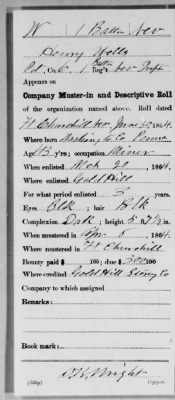 W | 1 Battn | Nev
Henry Wells
Pvt., Co. C, 1 Batt'n Reg't Nev Inft.
Appears on
Company Muster-in and Descriptive Roll
of the organization named above. Roll dated
Ft Churchill Nev June 30, 1864.
Where born
Age yrs; occupation Miner
When enlisted Mch 29, 1864.
Where enlisted Gold Hill
For what period enlisted 3 years.
Eyes Blk; hair Blk
Complexion Drk; height 5 ft. in.
When mustered in Apr. 5, 1864.
Where mustered in Ft Churchill
Bounty paid $ 100; due $ 300 100
Where credited Gold Hill
Company to which assigned
Remarks:
Book mark:
Wright
Copyist.